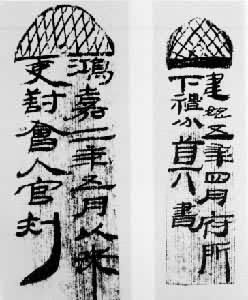 建始五年四月府所
下禮分
書
鴻嘉二年五月以來
吏對會入官刺